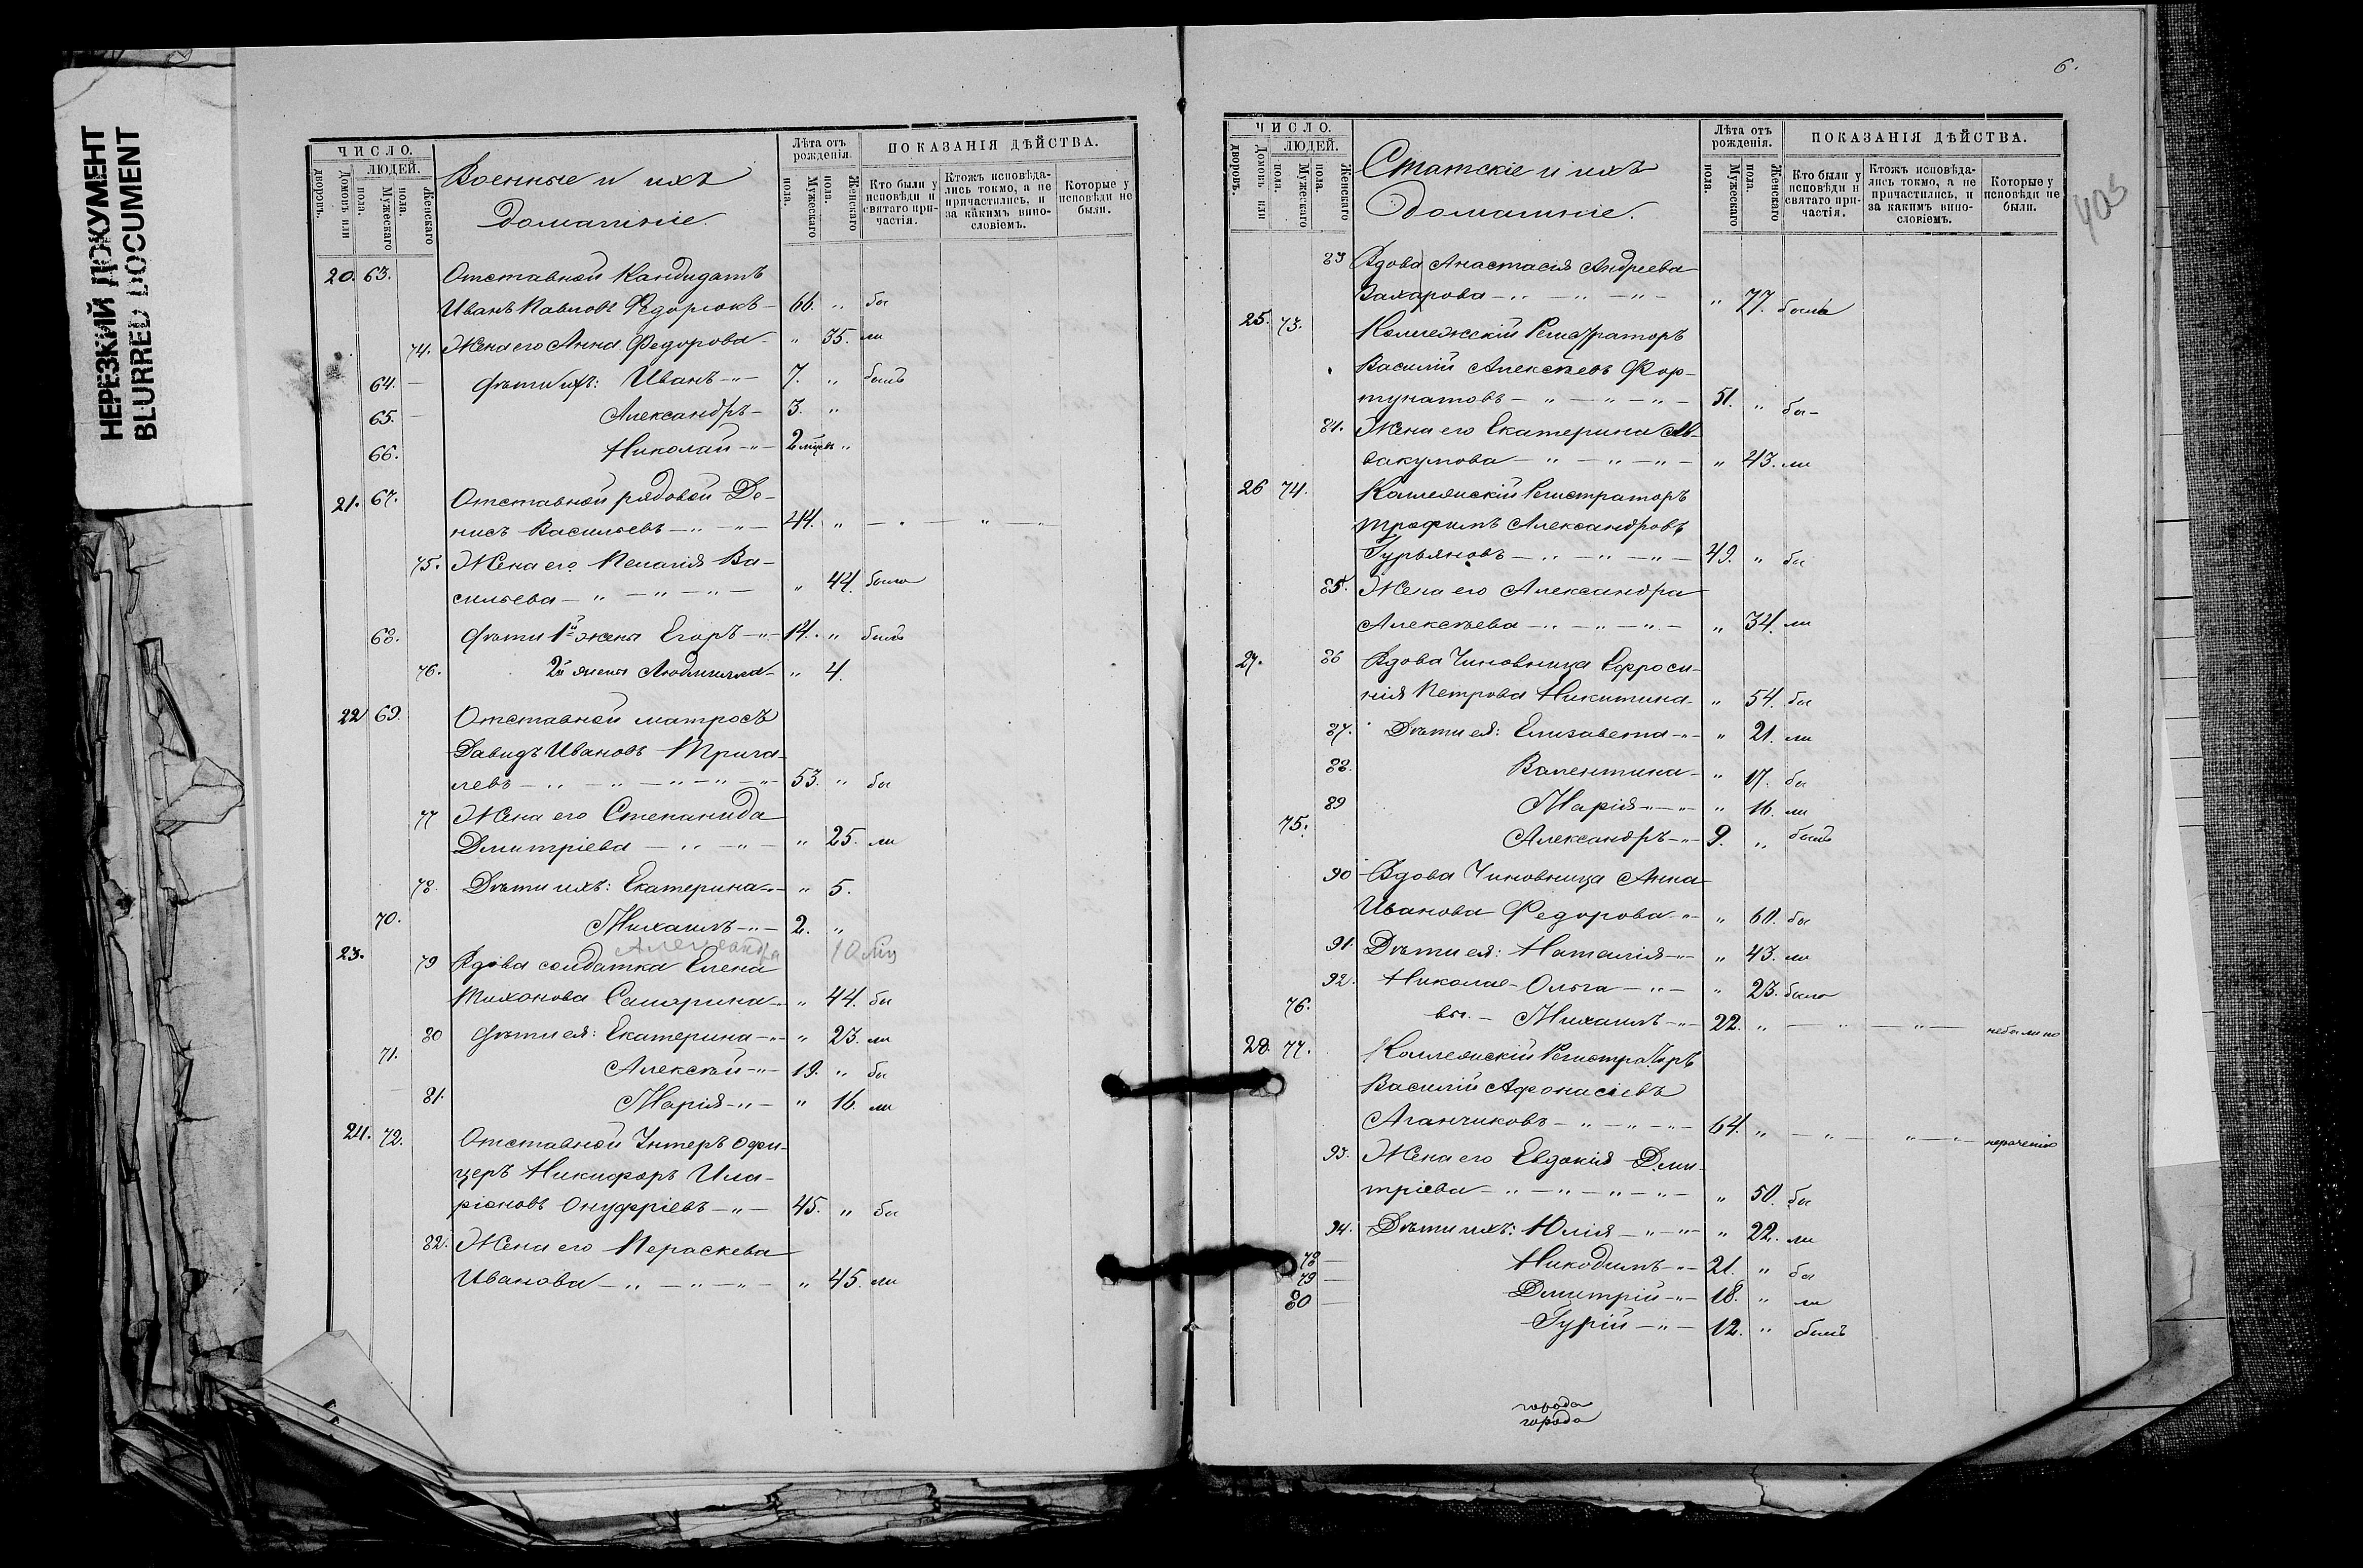 НЕРЕЗКИЙ ДОКУМЕНТ
BLURRED DOCUMENT
ЧИСЛО.
ЛЮДЕЙ.
Домовъ или дворовъ.
Мужескаго пола.
Женскаго пола.
Военные и ихъ
домашніе.
Лѣта отъ рожденія.
Мужескаго пола.
Женскаго пола.
ПОКАЗАНІЯ ДѢЙСТВА.
Кто были у исповѣди и святаго причастія.
Ктожъ исповѣдались токмо, а не причастились, и за какимъ винословіемъ.
Которые у исповѣди не были.
20. 63. Отставной Кандидатъ
Иванъ Павловъ Федорюкъ - 66. " бы
74. Жена его Анна Федорова - " 35. ли
64. - Дѣти ихъ: Иванъ - " - 7. " былъ
65. - Александръ - 3. "
66. Николай - " - 2 мѣсяц "
21. 67. Отставной рядовой Де-
нисъ Васильевъ - " - " - 44. " - " - " -
75. Жена его Пелагія Ва-
сильева - " - " - " - " 44. была
68. Дѣти 1й жены Егоръ - " - 14. " былъ
76. 2й жены Людмилла - " 4.
22 69. Отставной матросъ
Давидъ Ивановъ Трига-
левъ - " - " - " - " - " - 53. " бы
77 Жена его Степанида
Дмитріева - " - " - " 25. ли
78. Дѣти ихъ: Екатерина - " - " 5.
70. Михаилъ - " - 2. "
Александра 10 мѣц
23. 79 Вдова солдатка Елена
Тихонова Самарина - " - " 44. бы
80 Дѣти ея: Екатерина - " - " 23. ли
71. Алексѣй - " - 19. " бы
81. Марія - " - " 16. ли
24. 72. Отставной Унтеръ офи-
церъ Никифоръ Ила-
ріоновъ Онуфріевъ - " - 45. " бы
82. Жена его Пераскева
Иванова - " - " - " - " 45. ли
6.
405
ЧИСЛО.
ЛЮДЕЙ.
Домовъ или дворовъ.
Мужескаго пола.
Женскаго пола.
Статскіе и ихъ
домашніе.
Лѣта отъ рожденія.
Мужескаго пола.
Женскаго пола.
ПОКАЗАНІЯ ДѢЙСТВА.
Кто были у исповѣди и святаго причастія.
Ктожъ исповѣдались токмо, а не причастились, и за какимъ винословіемъ.
Которые у исповѣди не были.
83 Вдова Анастасія Андреева
Захарова - " - " - " - " 77. была
25. 73. Коллежскій Регистраторъ
Василій Алексѣевъ Фор-
тунатовъ - " - " - " - 51. " бы -
84. Жена его Екатерина Ав-
вакумова - " - " - " - " 43. ли
26 74. Коллежскій Регистраторъ
Трофимъ Александровъ
Гурьяновъ - " - " - " - 49. " бы
85. Жена его Александра
Алексѣева - " - " - " - " 34. ли
27. 86 Вдова Чиновница Ефроси-
нія Петрова Никитина - " 54. бы
87. Дѣти ея: Елизавета - " - " 21. ли
88. Валентина - " 17. бы
89 Марія - " - " - " 16. ли
75. Александръ - " - 9. " былъ
90 Вдова Чиновница Анна
Иванова Федорова - " - " 60. бы
91. Дѣти ея: Наталія - " - " 43. ли
92. Николае- Ольга - " - " 23. была
76. вы. - Михаилъ - " - 22. " - " - " - небылъ по
28. 77. Коллежскій Регистраторъ
Василій Афонасіевъ
Аганчиковъ - " - " - " - 64. " - " - " - " - нераченію
93. Жена его Евдокія Дми-
тріева - " - " - " - " - " 50. бы
94. Дѣти ихъ: Юлія - " - " - " 22. ли
78 - Никодимъ - " - 21. " бы
79 - Дмитрій - " - 18. " ли
80 - Гурій - " - 12. " былъ
города
города